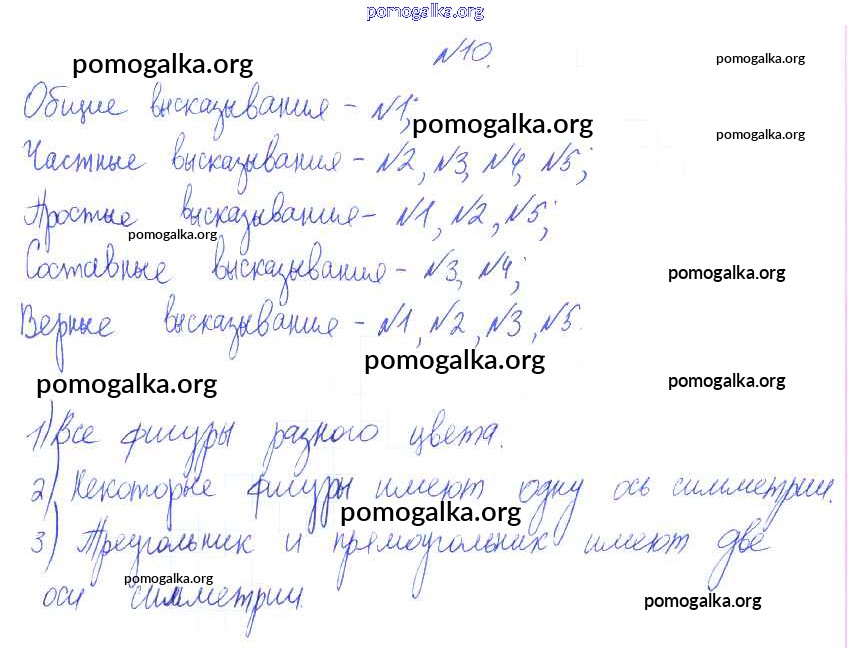 pomogalka.org
№10.
pomogalka.org
pomogalka.org
Общие высказывания - №1;
pomogalka.org
pomogalka.org
Частные высказывания - №2, №3, №4, №5;
Простые высказывания - №1, №2, №5;
pomogalka.org
Составные высказывания - №3, №4;
pomogalka.org
Верные высказывания - №1, №2, №3, №5.
pomogalka.org
pomogalka.org
pomogalka.org
1) Все фигуры разного цвета.
2) Некоторые фигуры имеют одну ось симметрии.
pomogalka.org
3) Треугольник и прямоугольник имеют две
pomogalka.org
оси симметрии.
pomogalka.org